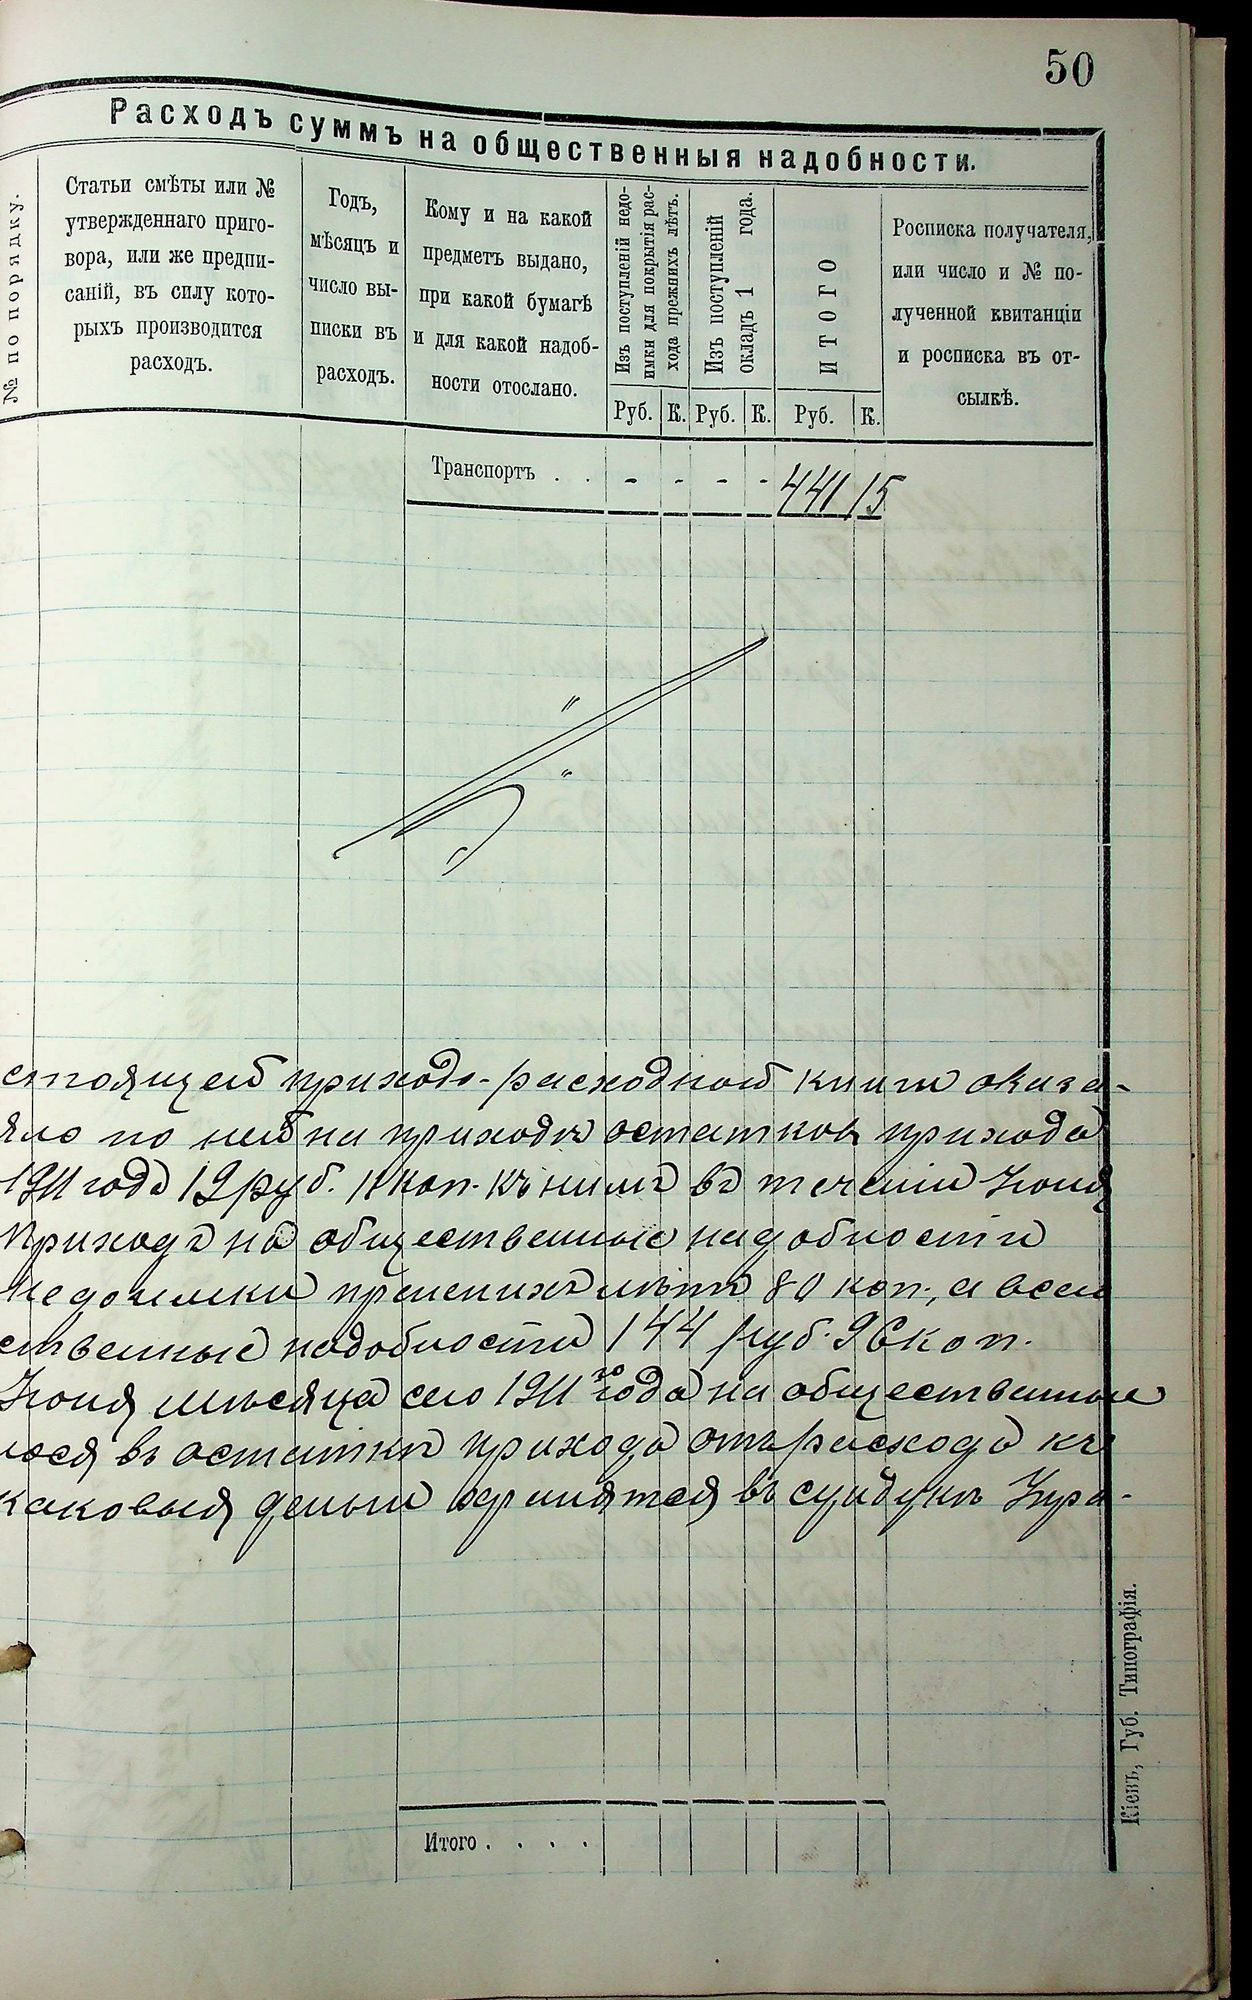 50
Расходъ суммъ на общественныя надобности.
№ по порядку.
Статьи смѣты или №
утвержденнаго приго-
вора, или же предпи-
саній, въ силу кото-
рыхъ производится
расходъ.
Годъ,
мѣсяцъ и
число вы-
писки въ
расходъ.
Кому и на какой
предметъ выдано,
при какой бумагѣ
и для какой надоб-
ности отослано.
Изъ поступленій недо-
имки для покрытія рас-
хода прежнихъ лѣтъ.
Изъ поступленій
окладъ 1 года.
ИТОГО
Росписка получателя,
или число и № по-
лученной квитанціи
и росписка въ от-
сылкѣ.
Руб. К. Руб. К. Руб. К.
Транспортъ . . - - - - 441 15
стоящей приходо-расходной книги оказа-
яло по ней на приходѣ остатков прихода
1911 года 12 руб. 11 коп. къ нимъ въ течении Іюня
приходъ на общественные надобности
недоимки прежнихъ лѣтъ 80 коп., а всего
ственные надобности 144 руб. 96 коп.
Іюня мѣсяца сего 1911 го года на общественные
лося въ остатки прихода отъ расхода къ
каковыя деньги хранятся въ сундукѣ Упра-
Итого . . . .
Кіевъ, Губ. Типографія.